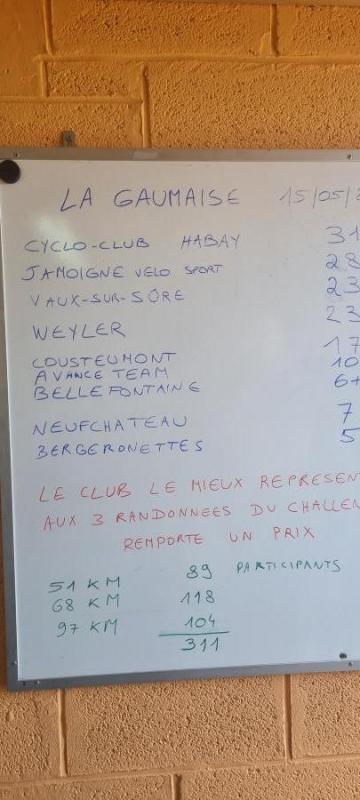 LA GAUMAISE 15/05/
CYCLO-CLUB HABAY 31
JAMOIGNE VELO SPORT 28
VAUX-SUR-SÛRE 23
WEYLER 23
COUSTEUMONT 17
AVANCE TEAM 10
BELLEFONTAINE 61
NEUFCHATEAU 7
BERGERONETTES 5
LE CLUB LE MIEUX REPRESEN
AUX 3 RANDONNEES DU CHALLEN
REMPORTE UN PRIX
51 KM 89 PARTICIPANTS
68 KM 118
97 KM 104
311